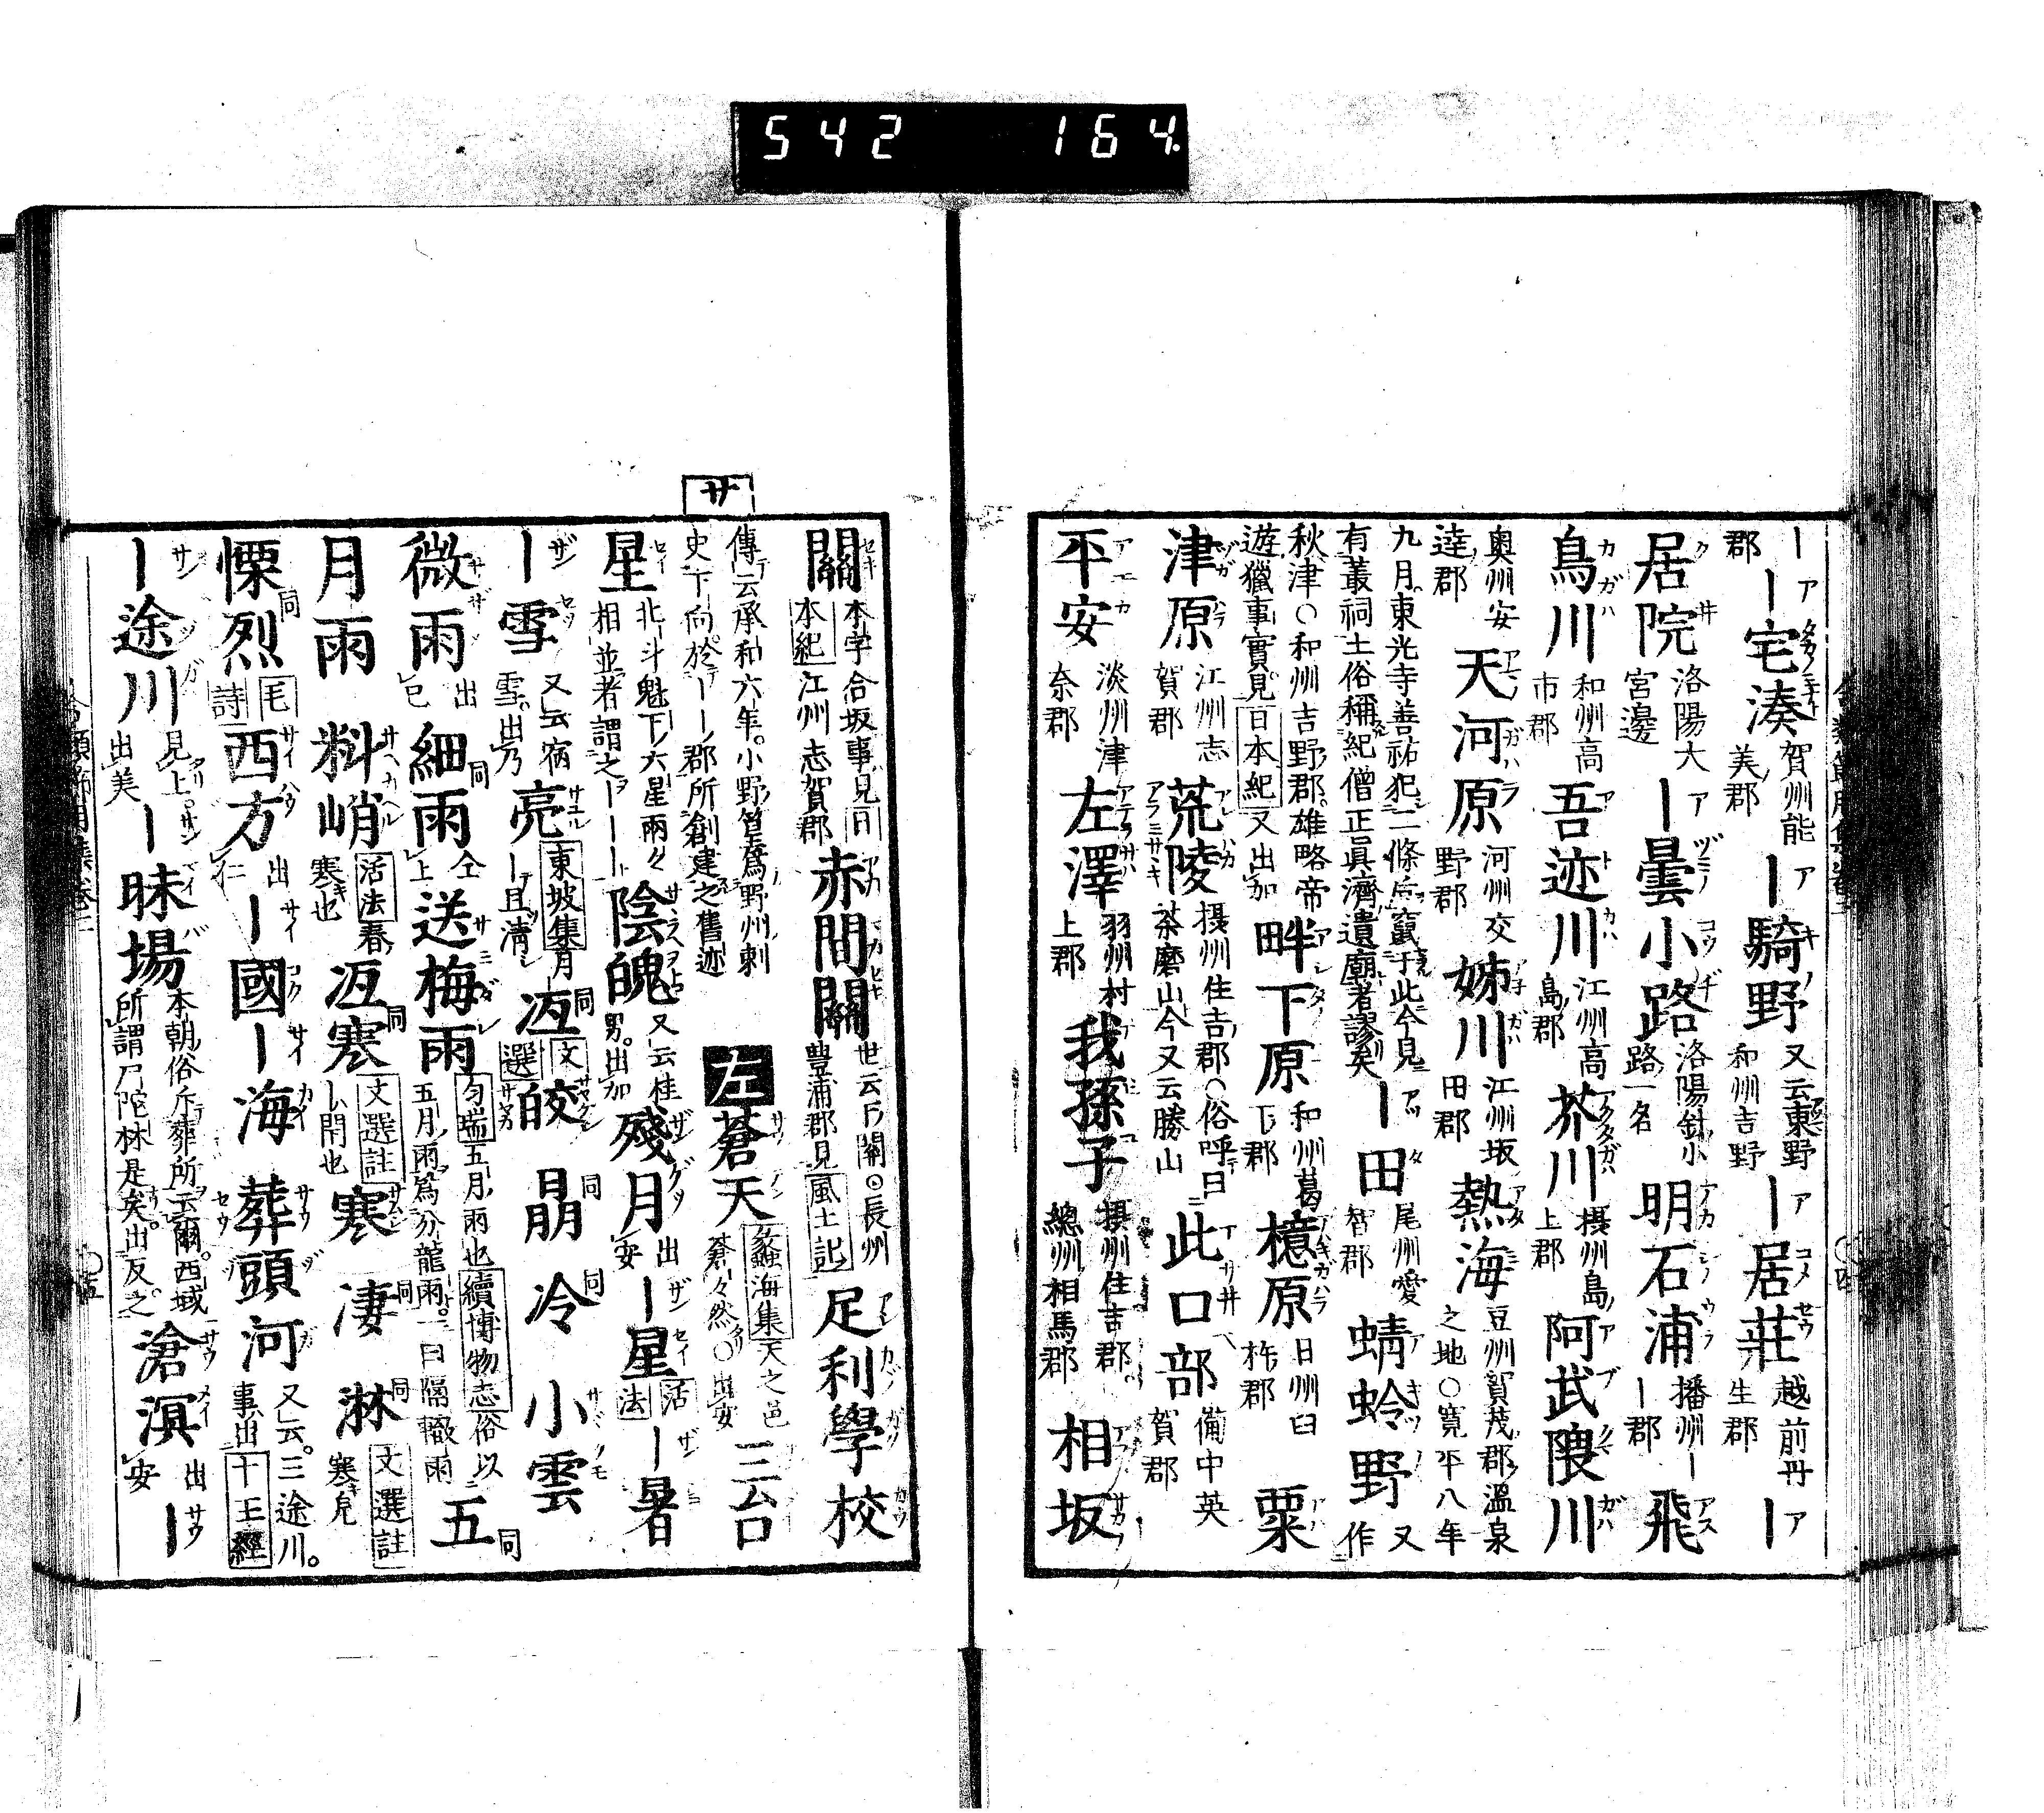 542 164.
郡 ｜｜宅湊 賀州能美郡 ｜騎野 又云東野和州吉野 ｜居莊 越前丹生郡 ｜
居院 洛陽大宮邊 ｜曇小路 洛陽針小路一名 明石浦 播州ー郡 飛
鳥川 和州高市郡 吾迹川 江州高島郡 芥川 摂州島上郡 阿武隈川
奥州安達郡 天河原 河州交野郡 姊川 江州坂田郡 熱海 豆州賀茂郡溫泉之地○寬平八年
九月東光寺善祐犯二條后竄于此今見有叢祠土俗稱紀僧正眞濟遺廟者謬矣 ｜田 尾州愛智郡 蜻蛉野 又作
秋津○和州吉野郡雄略帝遊獵事實見日本紀又出加 畔下原 和州葛下郡 檍原 日州臼杵郡 粟
津原 江州志賀郡 荒陵 摂州住吉郡○俗呼曰茶磨山今又云勝山 此口部 備中英賀郡
平安 淡州津奈郡 左澤 羽州村上郡 我孫子 摂州住吉郡總州相馬郡 相坂
サ
關 本字合坂事見日本紀江州志賀郡 赤間關 世云下關○長州豊浦郡見風土記 足利學校
傳云承和六年小野篁為野州刺史下向於ーー郡所創建之舊迹 左 蒼天 蠡海集天之邑蒼々然○出安 三台
星 北斗魁下六星兩々相並者謂之ーーー 陰魄 又云桂男出加 殘月 出安 ｜星 活法 ｜暑
｜雪 又云宿雪出乃 亮 東坡集月ー且清 冱 同文選 皎 朤 同 冷 同 小雲
微雨 出巳 細雨 同仝上 送梅雨 勻瑞五月雨也續博物志俗以五月雨為分龍雨一曰隔轍雨 五 同
月雨 料峭 活法春寒也 冱寒 同文選註ー閇也 寒 凄 同 淋 同文選註寒皃
慄烈 同毛詩 西方 出仁 ｜國 ｜海 葬頭河 又云三途川事出十王經
｜途川 見上出美 ｜昧場 本朝俗斥葬所云爾西域所謂尸陀林是矣出反之 滄溟 出安 ｜